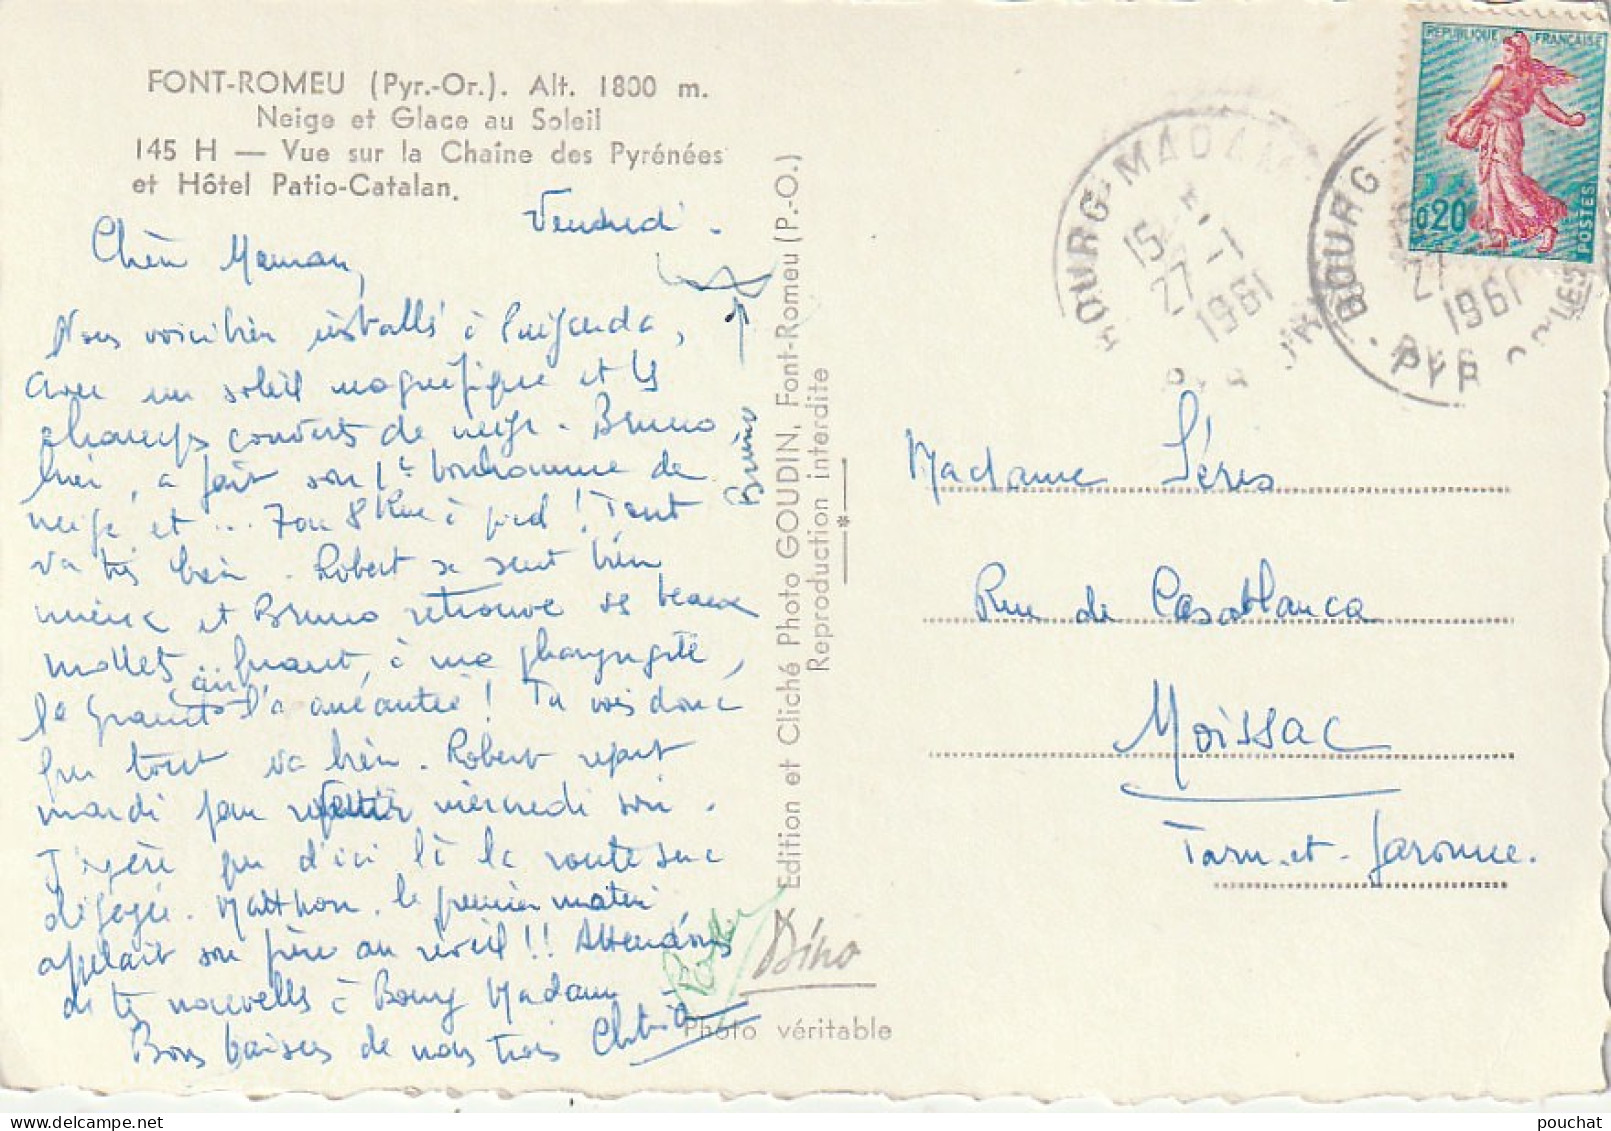 FONT-ROMEU (Pyr.-Or.). Alt. 1800 m.
Neige et Glace au Soleil
145 H — Vue sur la Chaîne des Pyrénées
et Hôtel Patio-Catalan.
Vendredi.
Chère Maman,
Nous voici bien installés à
avec un soleil magnifique et les
champs couverts de neige. Bruno,
hier, a fait son 1er bonhomme de
neige et ... 7 ou 8 km à pied ! Tout
va très bien. Robert se sent bien
mieux et Bruno retrouve ses beaux
mollets. Quant à ma pharyngite,
le grand air l'a anéantie ! Tu vois donc
que tout va bien. Robert repart
mardi pour mercredi soir.
J'espère que d'ici là la route sera
dégagée. le premier matin
appelait son père au réveil !! Attendons
de tes nouvelles à Bourg Madame
Bons baisers de nous trois
Bruno
Dino
Edition et Cliché Photo GOUDIN, Font-Romeu (P.-O.)
Reproduction interdite
Photo véritable
REPUBLIQUE FRANÇAISE
0,20
POSTES
BOURG-MADAME
15
27-1
1961
PYR. ORIENTALES
BOURG
27
1961
PYR
Madame Séres
Rue de Casablanca
Moissac
Tarn-et-Garonne.
pouchat